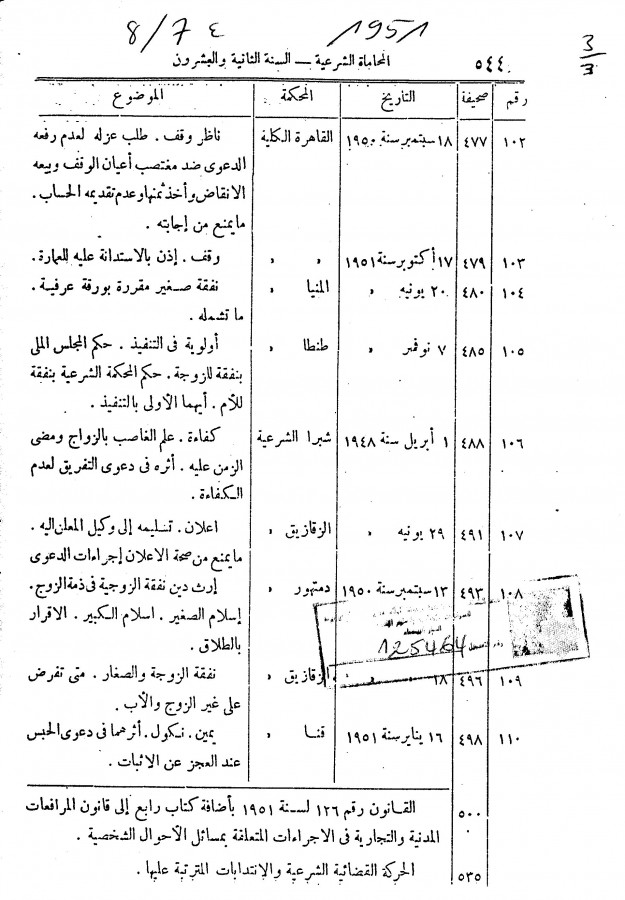 8/7٤ 1951
3/3
٥٤٤ المحاماة الشرعية — السنة الثانية والعشرون
رقم صحيفة التاريخ المحكمة الموضوع
١٠٢ ٤٧٧ ١٨ سبتمبر سنة ١٩٥٠ القاهرة الكلية ناظر وقف . طلب عزله لعدم رفعه
الدعوى ضد مغتصب أعيان الوقف وبيعه
الانقاض وأخذ ثمنها وعدم تقديمه الحساب .
ما يمنع من إجابته .
١٠٣ ٤٧٩ ١٧ أكتوبر سنة ١٩٥١ » » وقف . إذن بالاستدانة عليه للعمارة .
١٠٤ ٤٨٠ ٢٠ يونيه » المنيا » نفقة صغير مقررة بورقة عرفية .
ما تشمله .
١٠٥ ٤٨٥ ٧ نوفمبر » طنطا » أولوية فى التنفيذ . حكم المجلس الملى
بنفقة للزوجة . حكم المحكمة الشرعية بنفقة
للأم . أيهما الأولى بالتنفيذ .
١٠٦ ٤٨٨ ١ أبريل سنة ١٩٤٨ شبرا الشرعية كفاءة . علم الغاصب بالزواج ومضى
الزمن عليه . أثره فى دعوى التفريق لعدم
الكفاءة .
١٠٧ ٤٩١ ٢٩ يونيه » الزقازيق » اعلان . تسليمه إلى وكيل المعلن اليه .
ما يمنع من صحة الاعلان إجراءات الدعوى
١٠٨ ٤٩٣ ١٣ سبتمبر سنة ١٩٥٠ دمنهور » إرث دين نفقة الزوجية فى ذمة الزوج .
إسلام الصغير . اسلام الكبير . الاقرار
بالطلاق .
125464
١٠٩ ٤٩٦ ١٨ » » الزقازيق » نفقة الزوجة والصغار . متى تفرض
على غير الزوج والأب .
١١٠ ٤٩٨ ١٦ يناير سنة ١٩٥١ قنا » يمين . نكول . أثرهما فى دعوى الحبس
عند العجز عن الاثبات .
٥٠٠ القانون رقم ١٢٦ لسنة ١٩٥١ بأضافة كتاب رابع إلى قانون المرافعات
المدنية والتجارية فى الاجراءات المتعلقة بمسائل الأحوال الشخصية .
٥٣٥ الحركة القضائية الشرعية والإنتدابات المترتبة عليها .